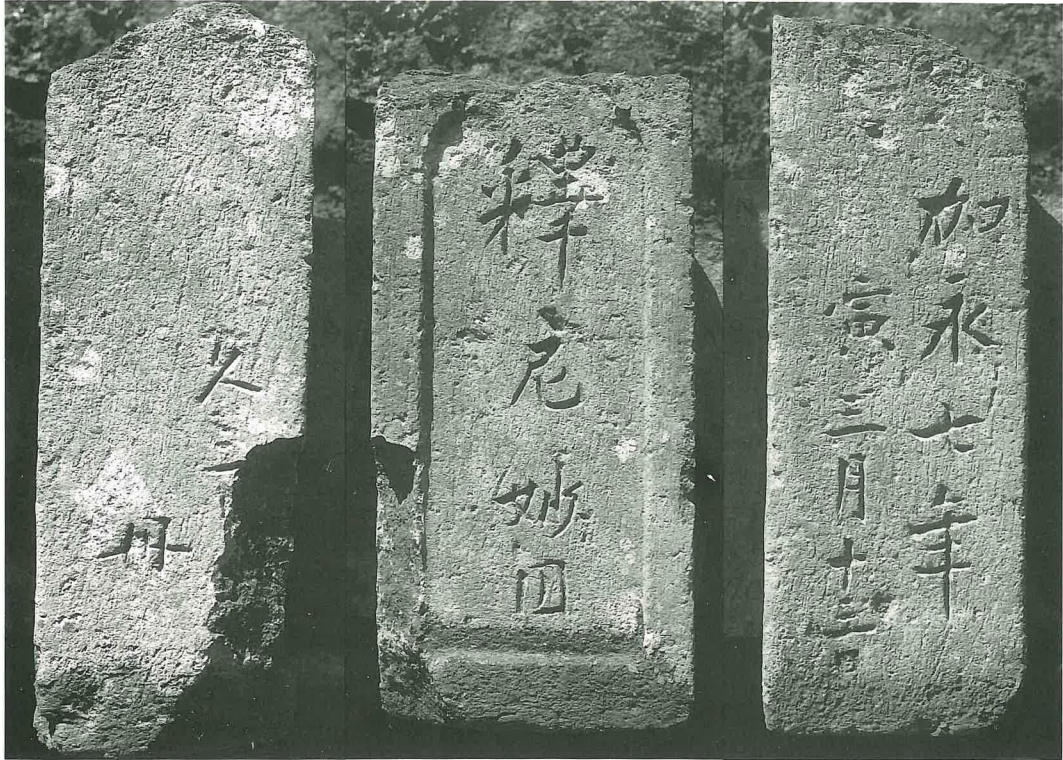 加永七年
寅三月十三日
釋尼妙
久